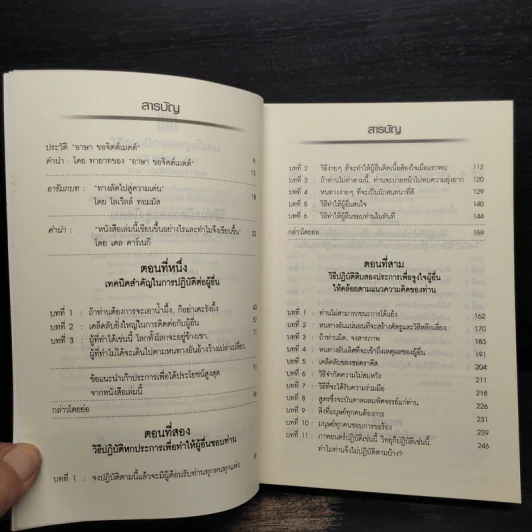 สารบัญ
ประวัติ "อาษา ขอจิตต์เมตต์"
คำนำ : โดย ทายาทของ "อาษา ขอจิตต์เมตต์"
อารัมภบท : "ทางลัดไปสู่ความเด่น"
โดย โลเวิลล์ ทอมมัส
คำนำ : "หนังสือเล่มนี้เขียนขึ้นอย่างไรและทำไมจึงเขียนขึ้น"
โดย เดล คาร์เนกี
ตอนที่หนึ่ง
เทคนิคสำคัญในการปฏิบัติต่อผู้อื่น
บทที่ 1 : ถ้าท่านต้องการจะเอาน้ำผึ้ง, ก็อย่าเตะรังผึ้ง
บทที่ 2 : เคล็ดลับยิ่งใหญ่ในการติดต่อกับผู้อื่น 57
บทที่ 3 : ผู้ที่ทำได้เช่นนี้ โลกทั้งโลกจะอยู่ข้างเขา,
ผู้ที่ทำไม่ได้จะเดินไปตามหนทางอันอ้างว้างเปล่าเปลี่ยว
ข้อแนะนำเก้าประการเพื่อได้ประโยชน์สูงสุด
จากหนังสือเล่มนี้
กล่าวโดยย่อ
ตอนที่สอง
วิธีปฏิบัติหกประการเพื่อทำให้ผู้อื่นชอบท่าน
บทที่ 1 : จงปฏิบัติตามนี้แล้วจะมีผู้ต้อนรับท่านทุกหนทุกแห่ง
สารบัญ
บทที่ 2 : วิธีง่ายๆ ที่จะทำให้ผู้อื่นติดเนื้อต้องใจเมื่อแรกพบ 112
บทที่ 3 : ถ้าท่านไม่ทำตามนี้, ท่านจะบ่ายหน้าไปพบความยุ่งยาก 120
บทที่ 4 : หนทางง่ายๆ ที่จะเป็นนักสนทนาที่ดี 129
บทที่ 5 : วิธีทำให้ผู้อื่นสนใจ 140
บทที่ 6 : วิธีทำให้ผู้อื่นชอบท่านในทันที 144
กล่าวโดยย่อ 159
ตอนที่สาม
วิธีปฏิบัติสิบสองประการเพื่อจูงใจผู้อื่น
ให้คล้อยตามแนวความคิดของท่าน
บทที่ 1 : ท่านไม่สามารถชนะการโต้แย้ง 162
บทที่ 2 : หนทางอันแน่นอนที่จะสร้างศัตรูและวิธีหลีกเลี่ยง 170
บทที่ 3 : ถ้าท่านผิด, จงสารภาพ 183
บทที่ 4 : หนทางอันเลิศที่จะเข้าถึงเหตุผลของผู้อื่น 191
บทที่ 5 : เคล็ดลับของซอคราตีส 204
บทที่ 6 : วิธีจำกัดความไม่สมหวัง 211
บทที่ 7 : วิธีที่จะได้รับความร่วมมือ 218
บทที่ 8 : สูตรซึ่งจะบันดาลผลมหัศจรรย์แก่ท่าน 226
บทที่ 9 : สิ่งที่มนุษย์ทุกคนต้องการ 231
บทที่ 10 : มนุษย์ทุกคนชอบการขอร้อง 239
บทที่ 11 : ภาพยนตร์ปฏิบัติเช่นนี้ วิทยุก็ปฏิบัติเช่นนี้. 246
ทำไมท่านจึงไม่ปฏิบัติตามบ้าง?